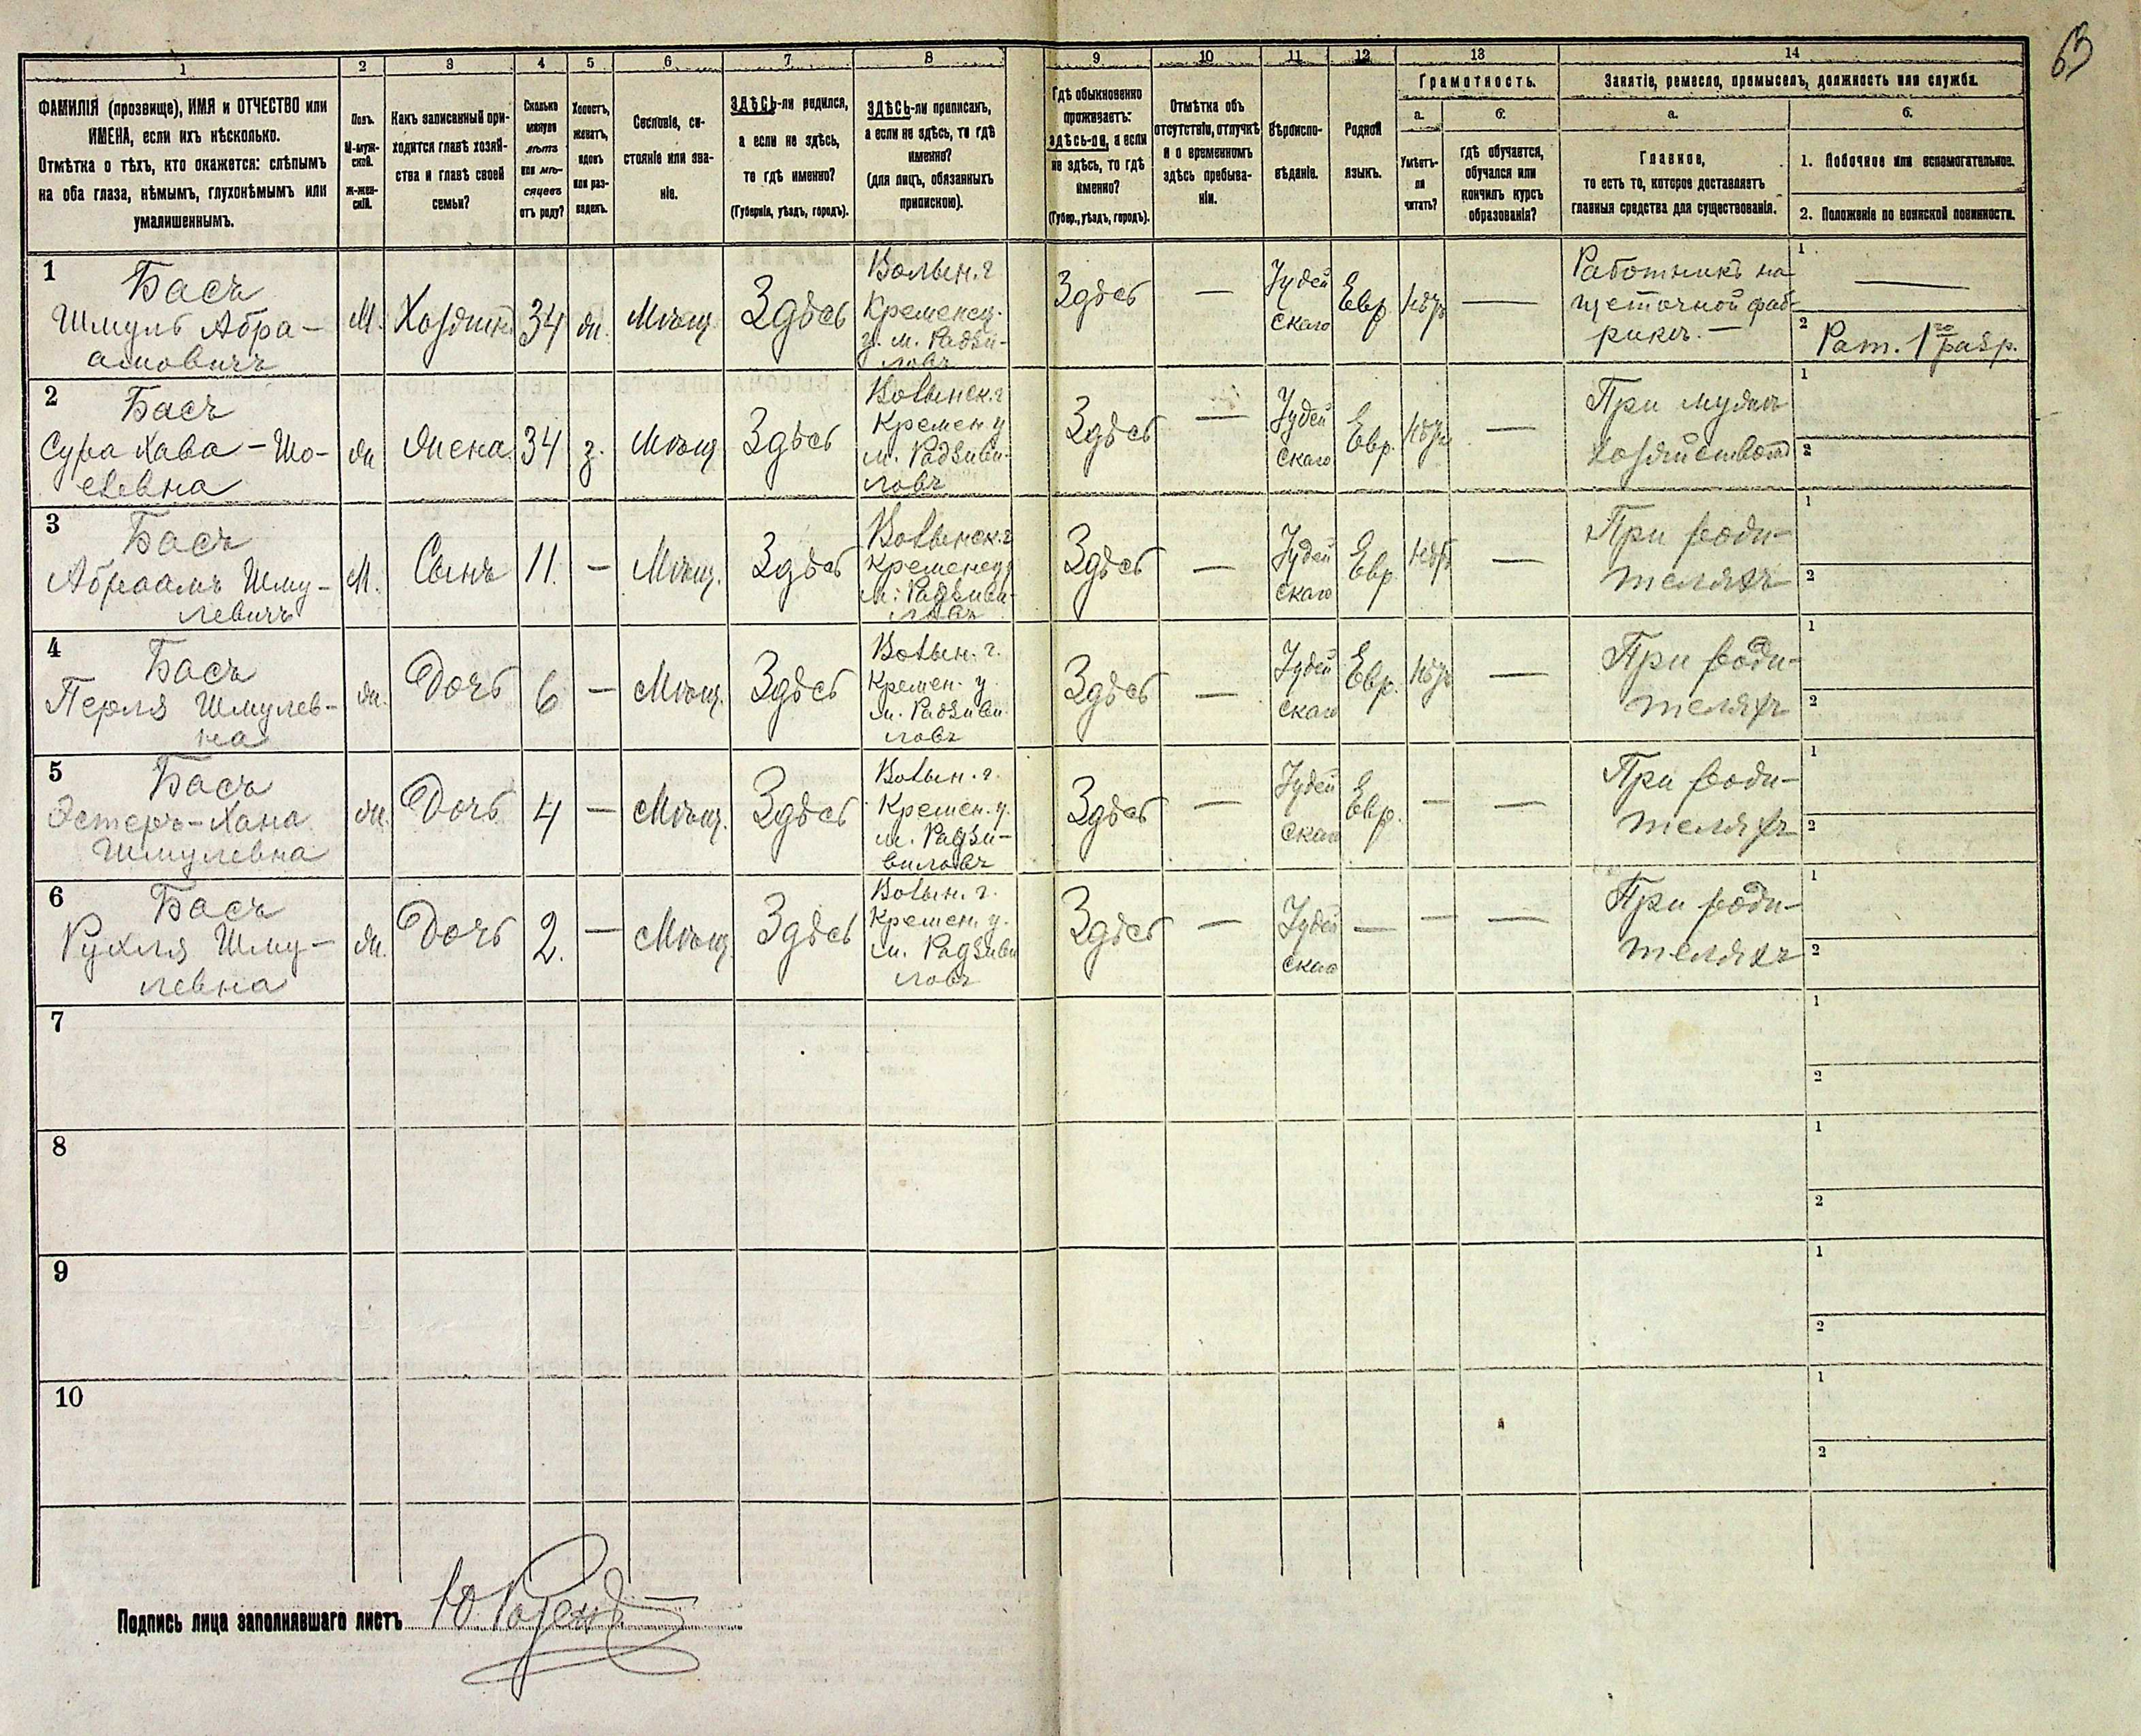 63
1
2
3
4
5
6
7
8
9
10
11
12
13
14
ФАМИЛІЯ (прозвище), ИМЯ и ОТЧЕСТВО или
ИМЕНА, если ихъ нѣсколько.
Отмѣтка о тѣхъ, кто окажется: слѣпымъ
на оба глаза, нѣмымъ, глухонѣмымъ или
умалишеннымъ.
Полъ.
М-муж-
ской.
ж-жен-
скій.
Какъ записанный при-
ходится главѣ хозяй-
ства и главѣ своей
семьи?
Сколько
минуло
лѣтъ
или мѣ-
сяцевъ
отъ роду?
Холостъ,
женатъ,
вдовъ
или раз-
веденъ.
Сословіе, со-
стояніе или зва-
ніе.
ЗДѢСЬ-ли родился,
а если не здѣсь,
то гдѣ именно?
(Губернія, уѣздъ, городъ).
ЗДѢСЬ-ли приписанъ,
а если не здѣсь, то гдѣ
именно?
(для лицъ, обязанныхъ
припискою).
Гдѣ обыкновенно
проживаетъ:
здѣсь-ли, а если
не здѣсь, то гдѣ
именно?
(Губер., уѣздъ, городъ).
Отмѣтка объ
отсутствіи, отлучкѣ
и о временномъ
здѣсь пребыва-
ніи.
Вѣроиспо-
вѣданіе.
Родной
языкъ.
Грамотность.
а.
Умѣетъ-
ли
читать?
б.
гдѣ обучается,
обучался или
кончилъ курсъ
образованія?
Занятіе, ремесло, промыселъ, должность или служба.
а.
Главное,
то есть то, которое доставляетъ
главныя средства для существованія.
б.
1. Побочное или вспомогательное.
2. Положеніе по воинской повинности.
1
Басъ
Шмуль Абра-
амовичъ
М.
Хозяинъ
34
ж.
Мѣщ
Здѣсь
Волын. г
Кременец.
у. м. Радзи-
ловъ
Здѣсь
—
Іудей
скаго
Евр
нѣтъ
—
Работникъ на
щеточной фаб-
рикѣ. —
1
—
2
Рат. 1го разр.
2
Басъ
Сура Хава - Шо-
елевна
ж
Жена
34
з.
Мѣщ
Здѣсь
Волынск. г
Кремен. у
м. Радзиви-
ловъ
Здѣсь
—
Іудей
скаго
Евр.
нѣтъ
—
При мужѣ
хозяйством
1
2
3
Басъ
Абраамъ Шму-
левичъ
М.
Сынъ
11.
—
Мѣщ.
Здѣсь
Волынск. г
Кременец у
м. Радзиви-
ловъ
Здѣсь
—
Іудей
скаго
Евр
нѣтъ
—
При роди-
теляхъ
1
2
4
Басъ
Перля Шмулев-
на
ж.
Дочь
6
—
Мѣщ.
Здѣсь
Волын. г.
Кремен. у.
м. Радзиви
ловъ
Здѣсь
—
Іудей
скаго
Евр.
нѣтъ
—
При роди-
теляхъ
1
2
5
Басъ
Эстеръ-Хана
Шмулевна
ж.
Дочь
4
—
Мѣщ.
Здѣсь
Волын. г.
Кремен. у.
м. Радзи-
виловъ
Здѣсь
—
Іудей
скаго
Евр.
—
—
При роди-
теляхъ
1
2
6
Басъ
Рухля Шму-
левна
ж.
Дочь
2.
—
Мѣщ.
Здѣсь
Волын. г.
Кремен. у.
м. Радзиви
ловъ
Здѣсь
—
Іудей
скаго
—
—
—
При роди-
теляхъ
1
2
7
1
2
8
1
2
9
1
2
10
1
2
Подпись лица заполнявшаго листъ